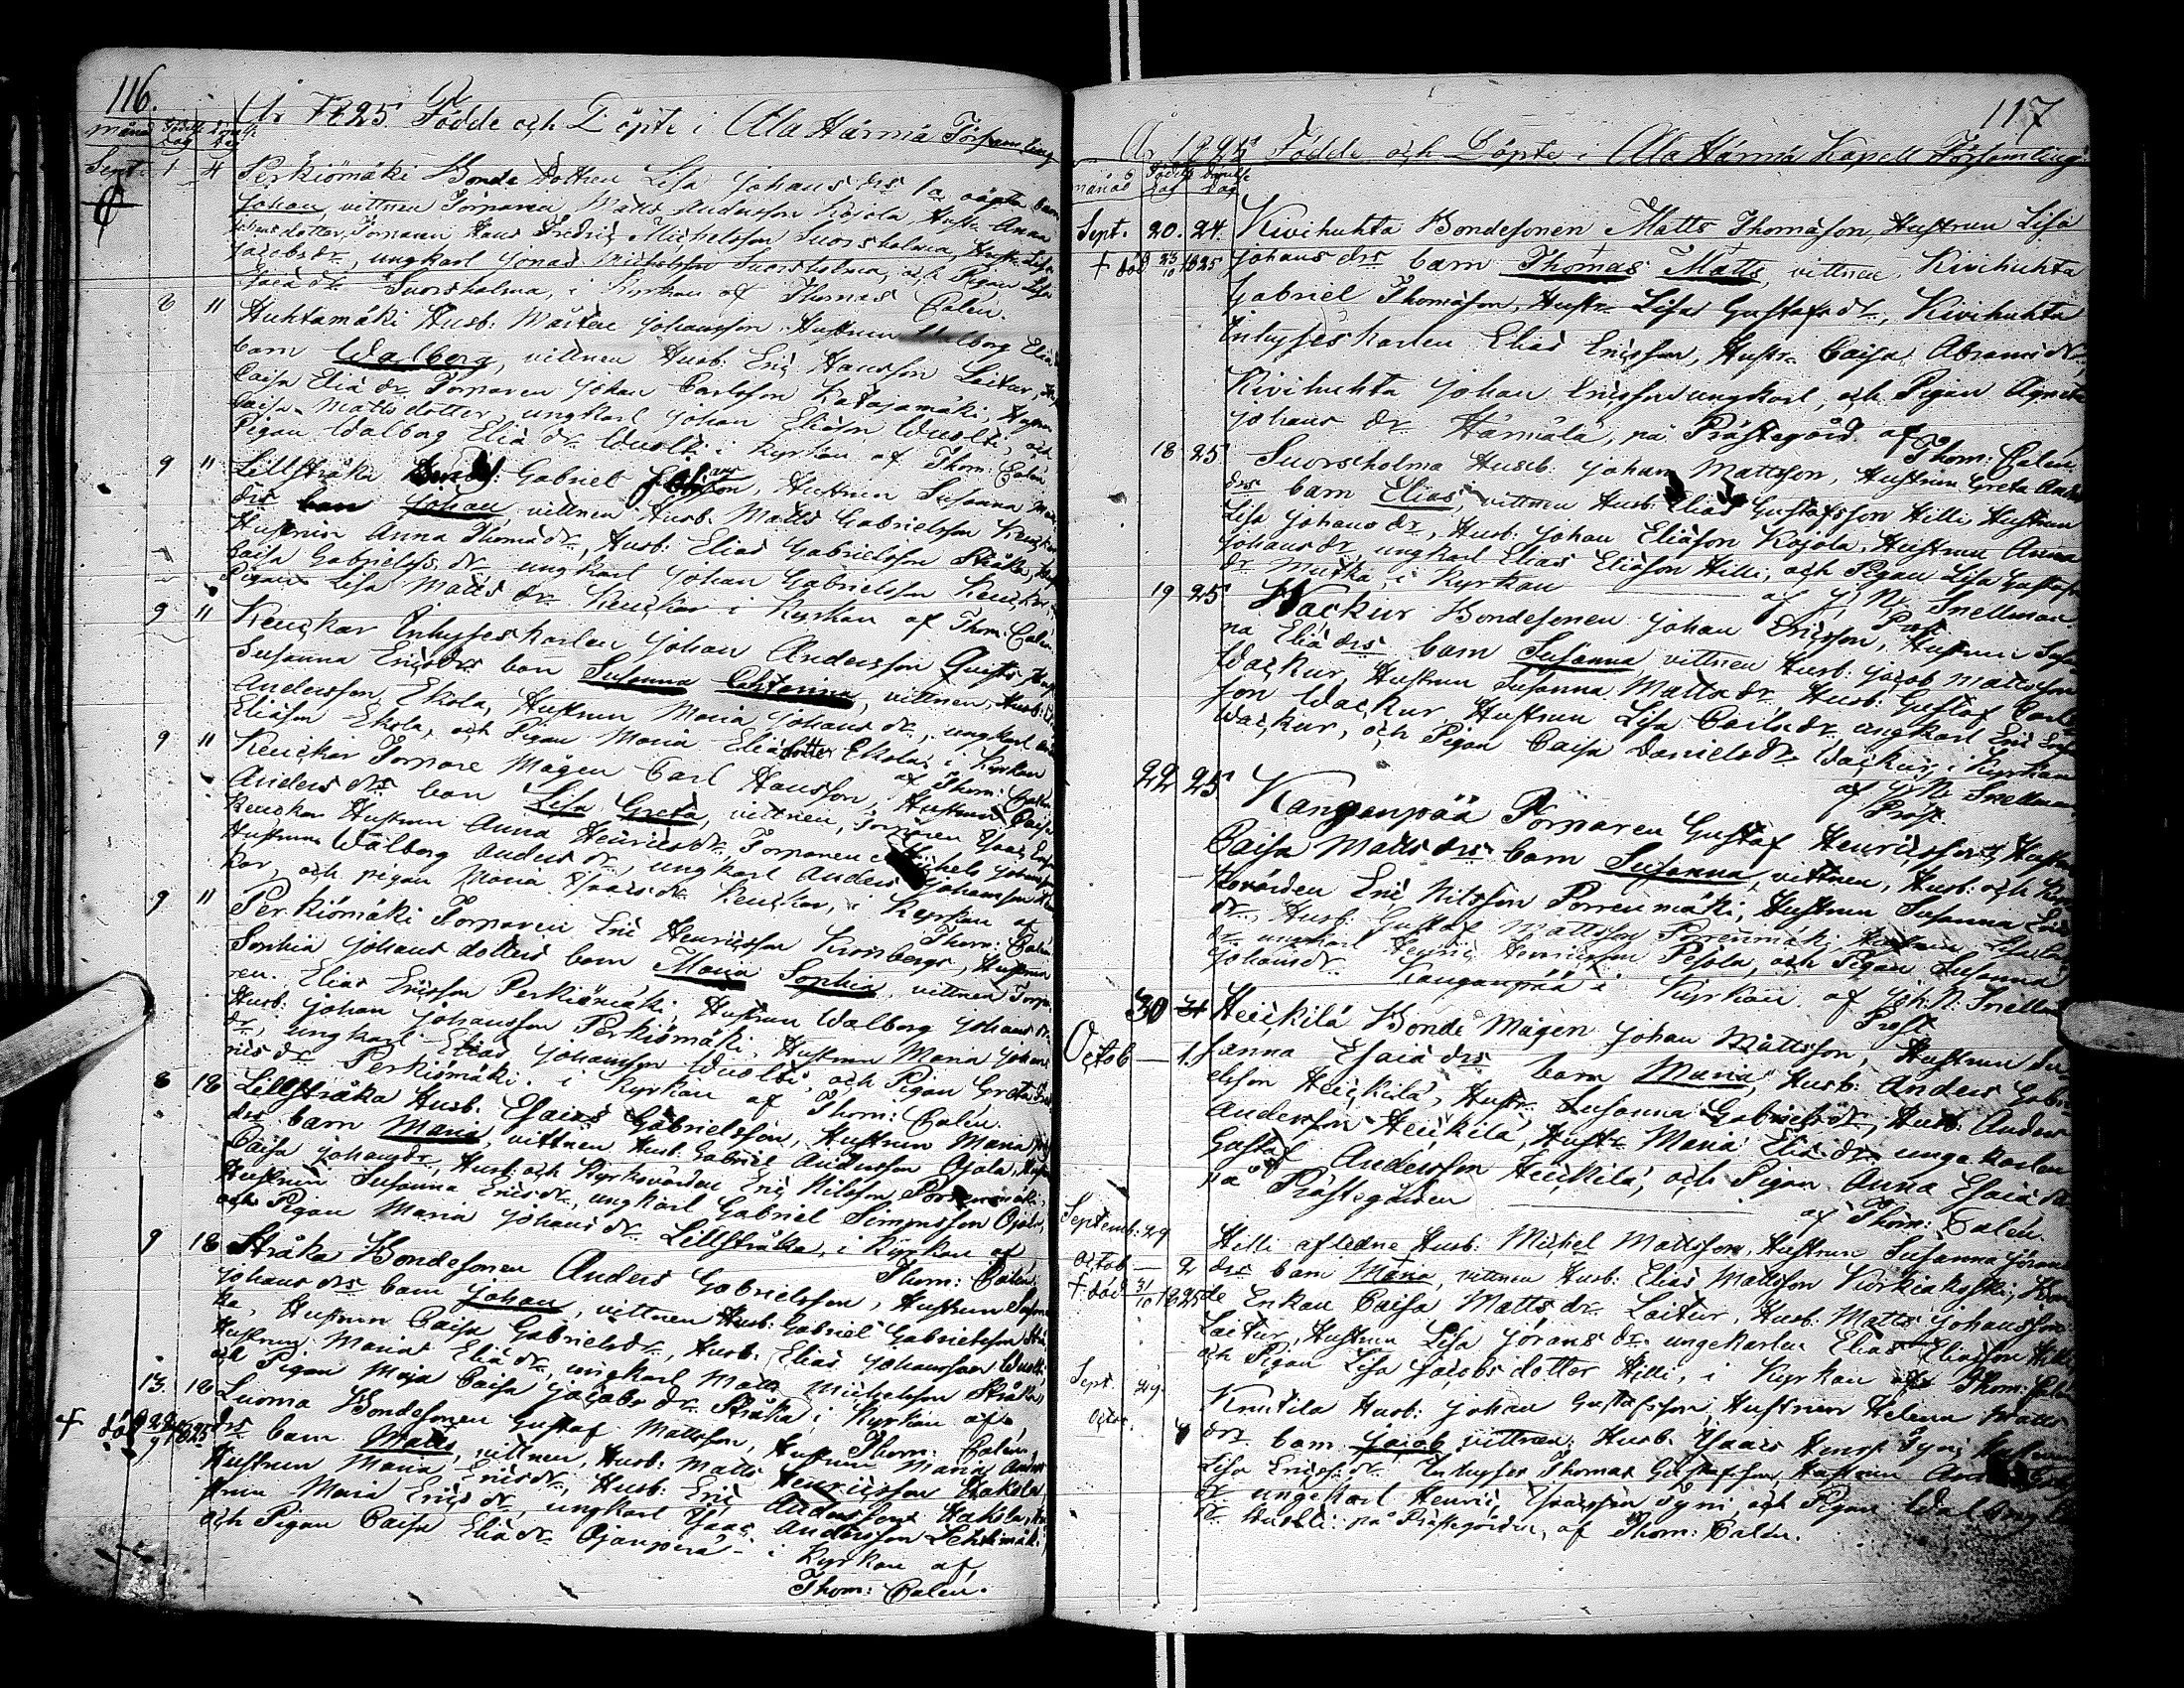 116.
År 1825. Födde och Döpte i Ala Härmä Församling
månad Födelse dag Döpelse dag
Sept: 1 4 Perkiömäki Bonde Dottren Lisa Johans drs oägta barn
Johan, vittnen Torparen Matts Andersson Kojola Hustr. Anna
Johans dotter, Torparen Hans Fredric Michelsson Suorsholma, Hustr. Lisa
Jacobs dr, ungkarl Jonas Michelsson Suorsholma, och Pigan Lisa
Esaiæ dr Suorsholma, i Kyrkan af Thomas Calén.
8 11 Huhtamäki Husb: Mårten Johansson, Hustrun Walborg Eliæ
barn Walborg, vittnen Husb: Eric Hansson Laitur,
Caisa Eliæ dr Torparen Johan Carlsson Katajamäki, Hustrun
Caisa Matts dotter, ungkarl Johan Eliæson Wuolti, och
Pigan Walborg Eliæ dr Wuolti i Kyrkan af Thom: Calén
9 11 Lillstråka Husb: Gabriel Johansson, Hustrun Susanna
drs barn Johan, vittnen Husb: Matts Gabrielsson Keuckar
Hustrun Anna Thomæ dr, Husb: Elias Gabrielsson Stråka,
Caisa Gabrielss. dr ungkarl Johan Gabrielsson Keuckar,
Pigan Lisa Matts dr Keuckar i Kyrkan af Thom: Calén
9 11 Keuckar Inhyses karlen Johan Andersson Quists,
Susanna Erics drs barn Susanna Catarina, vittnen, Husb:
Andersson Ekola, Hustrun Maria Johans dr, ungkarl
Eliæson Ekola, och Pigan Maria Eliæ dotter Ekola, i Kyrkan
af Thom: Calén
9 11 Keuckar Torpare Mågen Carl Hansson, Hustrun Caisa
Anders drs barn Lisa Greta, vittnen, Torparen Isaac
Keuckar Hustrun Anna Henrics dr, Torparen Michels Johansson
Hustrun Walborg Anders dr, ungkarl Anders Johansson
kar, och pigan Maria Isaacs dr Keuckar, i Kyrkan af
Thom: Calén
9 11 Perkiömäki Torparen Eric Henricsson Kronbergs, Hustrun
Sophia Johans dotters barn Maria Sophia, vittnen Torpa
ren Elias Ericsson Perkiömäki, Hustrun Walborg Johans dr
Husb: Johan Johansson Perkiömäki, Hustrun Maria Johans
dr, ungkarl Elias Johansson Wuolti, och Pigan Greta
rics dr Perkiömäki. i Kyrkan af Thom: Calén.
8 18 Lillstråka Husb: Esaias Gabrielsson, Hustrun Maria
drs barn Maria, vittnen Husb: Gabriel Andersson Ojala,
Caisa Johans dr, Husb: och Kyrkovärden Eric Nilsson Porrenmäki,
Hustrun Susanna Erics dr, ungkarl Gabriel Simonsson Ojala,
och Pigan Maria Johans dr Lillstråka, i Kyrkan af
Thom: Calén
9 18 Stråka Bondesonen Anders Gabrielsson, Hustrun
Johans drs barn Johan, vittnen Husb: Gabriel Gabrielsson Strå
ka, Hustrun Caisa Gabriels dr, Husb: Elias Johansson Wuolti
Hustrun Maria Eliæ dr, ungkarl Matts Michelsson Stråka
och Pigan Maja Caisa Jacobs dr Stråka, i Kyrkan af
Thom: Calén.
13. 18 Luoma Bondesonen Gustaf Mattsson, Hustrun Maria Anders
† död 22/9 1825 drs barn Matts, vittnen, Husb: Matts Henricsson Hakola
Hustrun Maria Erics dr, Husb: Eric Andersson Hakola,
strun Maria Erics dr, ungkarl Isaac Andersson Lehtimäki
och Pigan Caisa Eliæ dr Ojanperä i Kyrkan af
Thom: Calén.
117
År 1825 Födde och Döpte i Ala Härmä Kapell Församling
månad Födelse dag Döpelse dag
Sept. 20. 24. Kivihuhta Bondesonen Matts Thomæson, Hustrun Lisa
† död 23/10 1825 Johans drs barn Thomas Matts, vittnen, Kivihuhta
Gabriel Thomæson, Hustr Lisa Gustafs dr, Kivihuhta
Inhyses karlen Elias Ericsson, Hustr. Caisa Abrams dr,
Kivihuhta Johan Ericsson ungkarl, och Pigan Agneta
Johans dr Härmälä, på Prästegård af
Thom: Calén
18 25 Suorsholma Husb: Johan Mattsson, Hustrun Greta
drs barn Elias, vittnen Husb: Elias Gustafsson Hilli, Hustrun
Lisa Johans dr, Husb: Johan Eliæson Kojola, Hustrun Anna
Johans dr, ungkarl Elias Eliæson Hilli, och Pigan Lisa Gustafs
dr Mutka, i Kyrkan af J. N. Snellman
Prost.
19 25 Wackur Bondesonen Johan Ericsson, Hustrun
na Eliæ drs barn Susanna vittnen Husb: Jacob Mattsson
Wackur Hustrun Susanna Matts dr Husb: Gustaf Carls
son Wackur Hustrun Lisa Carls dr ungkarl Eric
Wackur, och Pigan Caisa Daniels dr Wackur, i Kyrkan
af J. N. Snellman
Prost.
22 25 Kangenpää Torparen Gustaf Henricsson, Hustrun
Caisa Matts drs barn Susanna, vittnen, Husb: och
kovärden Eric Nilsson Porrenmäki, Hustrun Susanna
dr, Husb: Gustaf Mattsson Porrenmäki, Hustrun Lisa
dr ungkarl Henric Henricsson Pesola, och Pigan Susanna
Johans dr Kangenpää i Kyrkan af Joh. N. Snellman
Prost
30 Heickilä Bonde Mågen Johan Mattsson, Hustrun Su
Octob — 1. sanna Esaiæ drs barn Maria, Husb: Anders Gabri
elsson Heickilä, Hustr. Susanna Gabriels dr, Husb: Anders
Andersson Heickilä, Hustr. Maria Eliæ dr unge karlen
Gustaf Andersson Heickilä, och Pigan Anna Esaiæ dr
på Prästegården af Thom: Calén.
Septemb: 29 Hilli afledne Husb: Michel Mattsson, Hustrun Susanna Jörans
Octob — 2 drs barn Maria, vittnen Husb: Elias Mattsson Kiorkiakoski,
† död 31/10 1825 Enkan Caisa Matts dr Laitur, Husb: Matts Johansson
Laitur, Hustrun Lisa Jörans dr ungekarlen Elias Eliæson Hilli
och Pigan Lisa Jacobs dotter Hilli, i Kyrkan af Thom: Calén
Sept. 29. Knutila Husb: Johan Gustafsson, Hustrun Helena Matts
Octob. drs barn Jacob vittnen, Husb. Isaac Syni
Lisa Erics dr Inhyses Thomas Gustafsson Hustrun
dr ungekarl Henric Isaacsson Syni och Pigan Walborg
dr på Prästegården, af Thom: Calén.